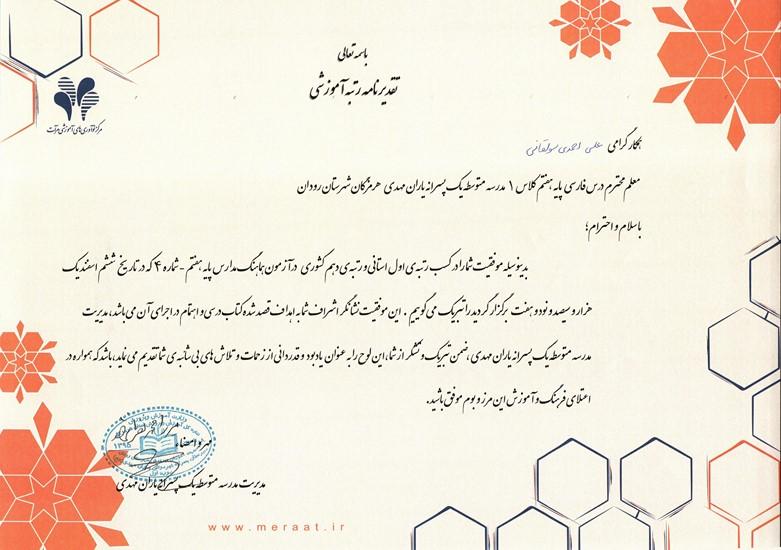 باسمه تعالی
تقدیرنامه رتبه آموزشی
مرکز نوآوری های آموزشی مرآت
همکار گرامی علی احمدی سولقانی
معلم محترم درس فارسی پایه هفتم کلاس ۱ مدرسه متوسطه یک پسرانه یاران مهدی هرمزگان شهرستان رودان
با سلام و احترام؛
بدینوسیله موفقیت شما را در کسب رتبه ی اول استانی و رتبه ی دهم کشوری در آزمون هماهنگ مدارس پایه هفتم - شماره ۴ که در تاریخ ششم اسفند یک
هزار و سیصد و نود و هفت برگزار گردید را تبریک می گوییم . این موفقیت نشانگر اشراف شما به اهداف قصد شده کتاب درسی و اهتمام در اجرای آن می باشد، مدیریت
مدرسه متوسطه یک پسرانه یاران مهدی، ضمن تبریک و تشکر از شما، این لوح را به عنوان یادبود و قدردانی از زحمات و تلاش های بی شائبه ی شما تقدیم می نماید، باشد که همواره در
اعتلای فرهنگ و آموزش این مرز و بوم موفق باشید.
مهر و امضاء
۱۳۹۵
مدیریت مدرسه متوسطه یک پسرانه یاران مهدی
www.meraat.ir